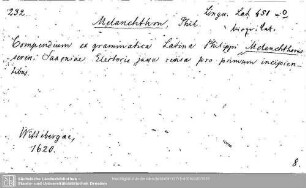 232.
Melanchthon, Phil.
Lingu. Lat. 451
Compendium ex grammatica Latina Philippi Melanchthonis
seren: Saxoniae Electoris jussu pro primum incipien-
tibus.
Wittebergae,
1620.
8.
Sächsische Landesbibliothek –
Staats- und Universitätsbibliothek Dresden